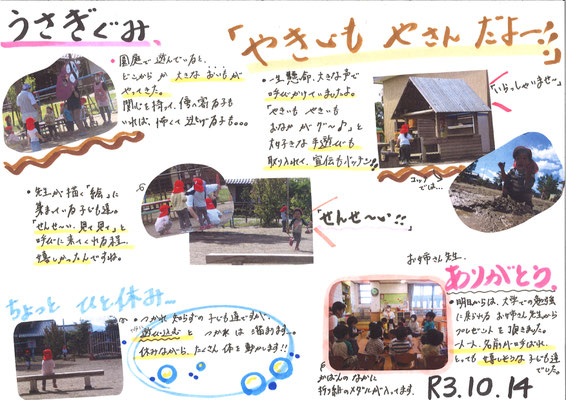 うさぎぐみ、
・園庭で遊んでいると、
どこからか大きなおいもが
やってきた。
関心を持って、傍に寄る子も
いれば、怖くて逃げる子も。。。
「やきいもやさんだよー!!」
・一生懸命、大きな声で
呼びかけていましたよ。
「やきいも やきいも
おなかがグ〜♪」と
大好きな手遊びも
取り入れて、宣伝もバッチリ!!
「いらっしゃいませ〜」
コッチ
では…
・先生が描く「絵」に
集まっている子ども達。
「せんせ〜い、見て見て」と
呼びに来てくれる程、
嬉しかったんですね。
「せんせ〜い!!」
ちょっと ひと休み…
・つかれ知らずの子ども達ですが、
遊び込むと つかれは溜まります。
休みながら、たくさん体を動かします!!
お姉さん先生、
ありがとう。
・明日からは、大学での勉強
に戻られるお姉さん先生から
プレゼントを頂きました。
一人一人、名前が呼ばれ、
とっても嬉しそうな子ども達
でした。
かばんのなかに
折り紙のメダルが入ってます。
R3.10.14